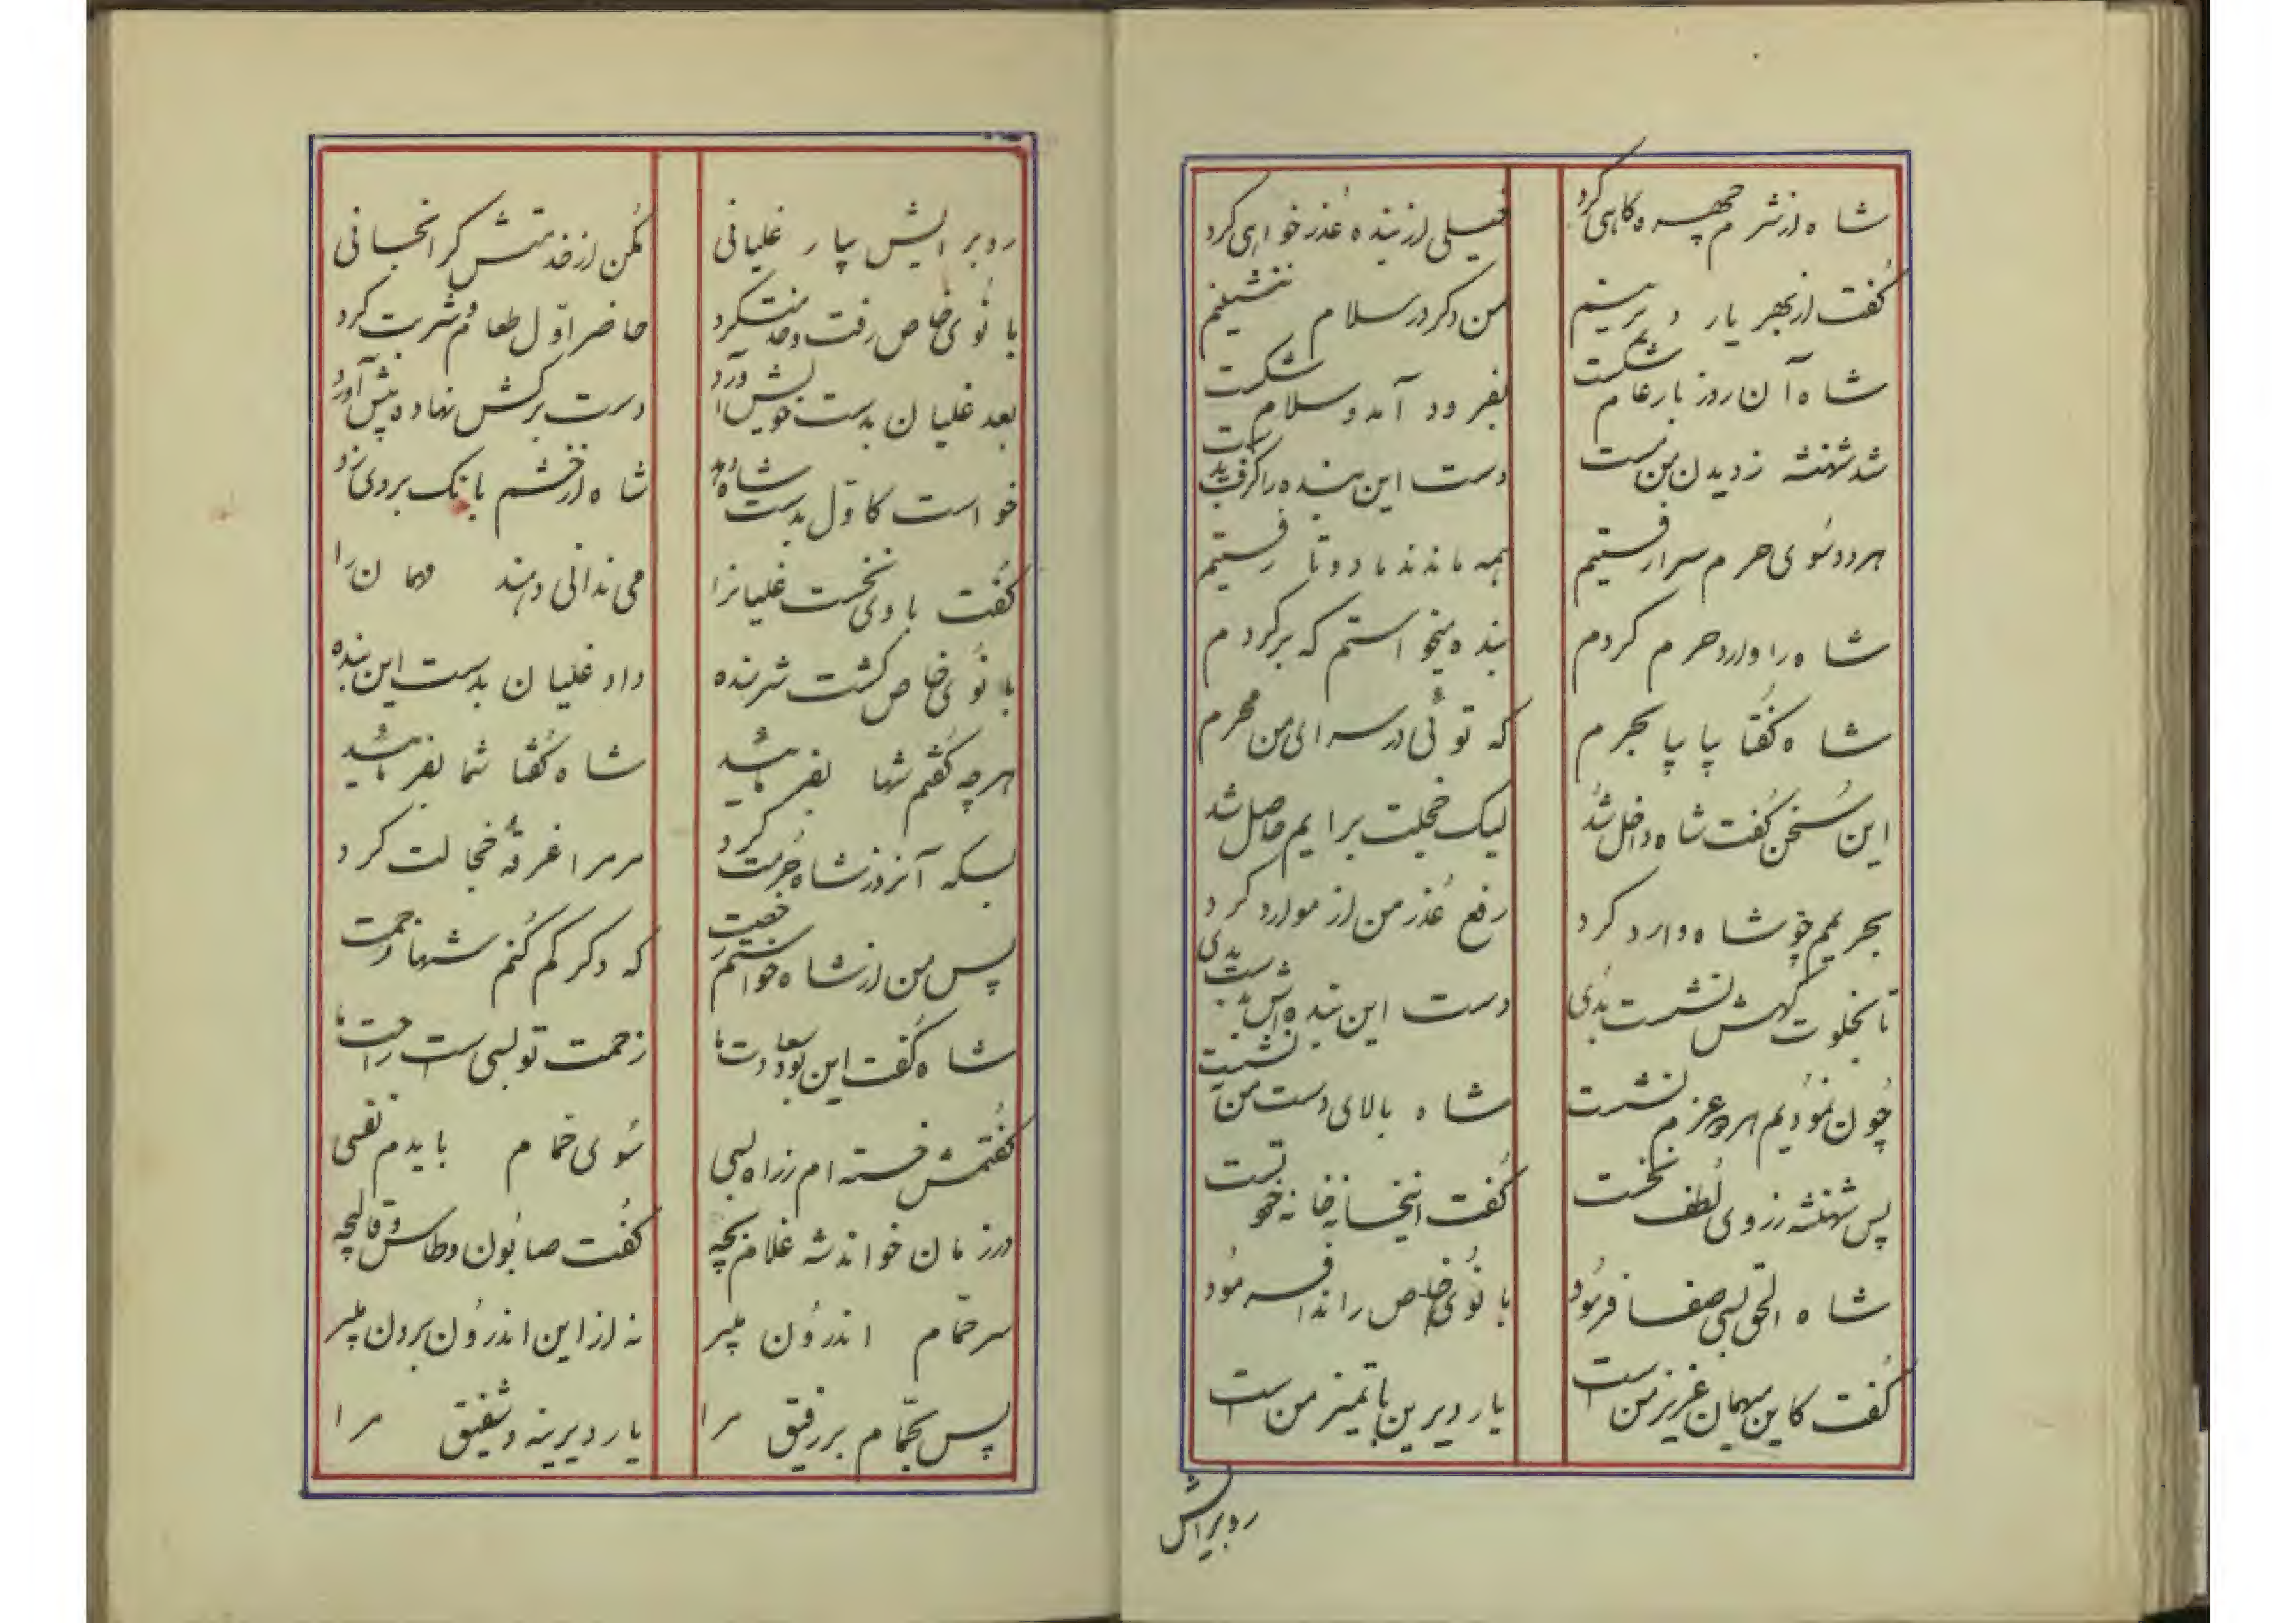 شاه از شرم چهره کاهی کرد خیلی از بنده عذر خواهی کرد
گفت از بهر یار دیرینم من دگر در سلام ننشینم
شاه آن روز بار عام شکست بفرود آمد و سلام شکست
شد شهنشه ز دیدن من مست دست این بنده را گرفت بدست
هر دو سوی حرمسرا رفتیم همه ماندند ما دو تا رفتیم
شاه را وارد حرم کردم بنده میخواستم که برگردم
شاه گفتا بیا بیا بحرم که توئی در سرای من محرم
این سخن گفت شاه و داخل شد لیک خجلت برایم حاصل شد
بحریمم چو شاه وارد کرد رفع عذر من از موارد کرد
تا بخلوت گهش نشست بدی دست این بنده اش بدست بدی
چون نمودیم هر دو عزم نشست شاه بالای دست من ننشست
پس شهنشه ز روی لطف نخست گفت اینخانه خانه خود تست
شاه الحق بسی صفا فرمود بانوی خاص را ندا فرمود
گفت کاین میهمان عزیز من است یار دیرین با تمیز من است
روبرایش
رو برایش بیار غلیانی مکن از خدمتش گرانجانی
بانوی خاص رفت و خدمت کرد حاضر اول طعام و شربت کرد
بعد غلیان بدست خویش آورد دست برکش نهاده پیش آورد
خواست کاول بدست شاه دهد شاه از خشم بانک بر وی زد
گفت با وی نخست غلیانرا می ندانی دهند مهمان را
بانوی خاص گشت شرمنده داد غلیان بدست این بنده
هر چه گفتم شها بفرمائید شاه گفتا شما بفرمائید
بسکه آنروز شاه حرمت کرد مر مرا غرقهٔ خجالت کرد
پس من از شاه خواستم رخصت که دگر کم کنم شها زحمت
شاه گفت این بود سعادت ما زحمت تو بسی است راحت ما
گفتمش خسته ام ز راه بسی سوی حمام بایدم نفسی
در زمان خواند شه غلام بچه گفت صابون و طاس و قالیچه
سر حمام اندرون میبر نه از این اندرون برون میبر
پس بحمام بر رفیق مرا یار دیرینه و شفیق مرا